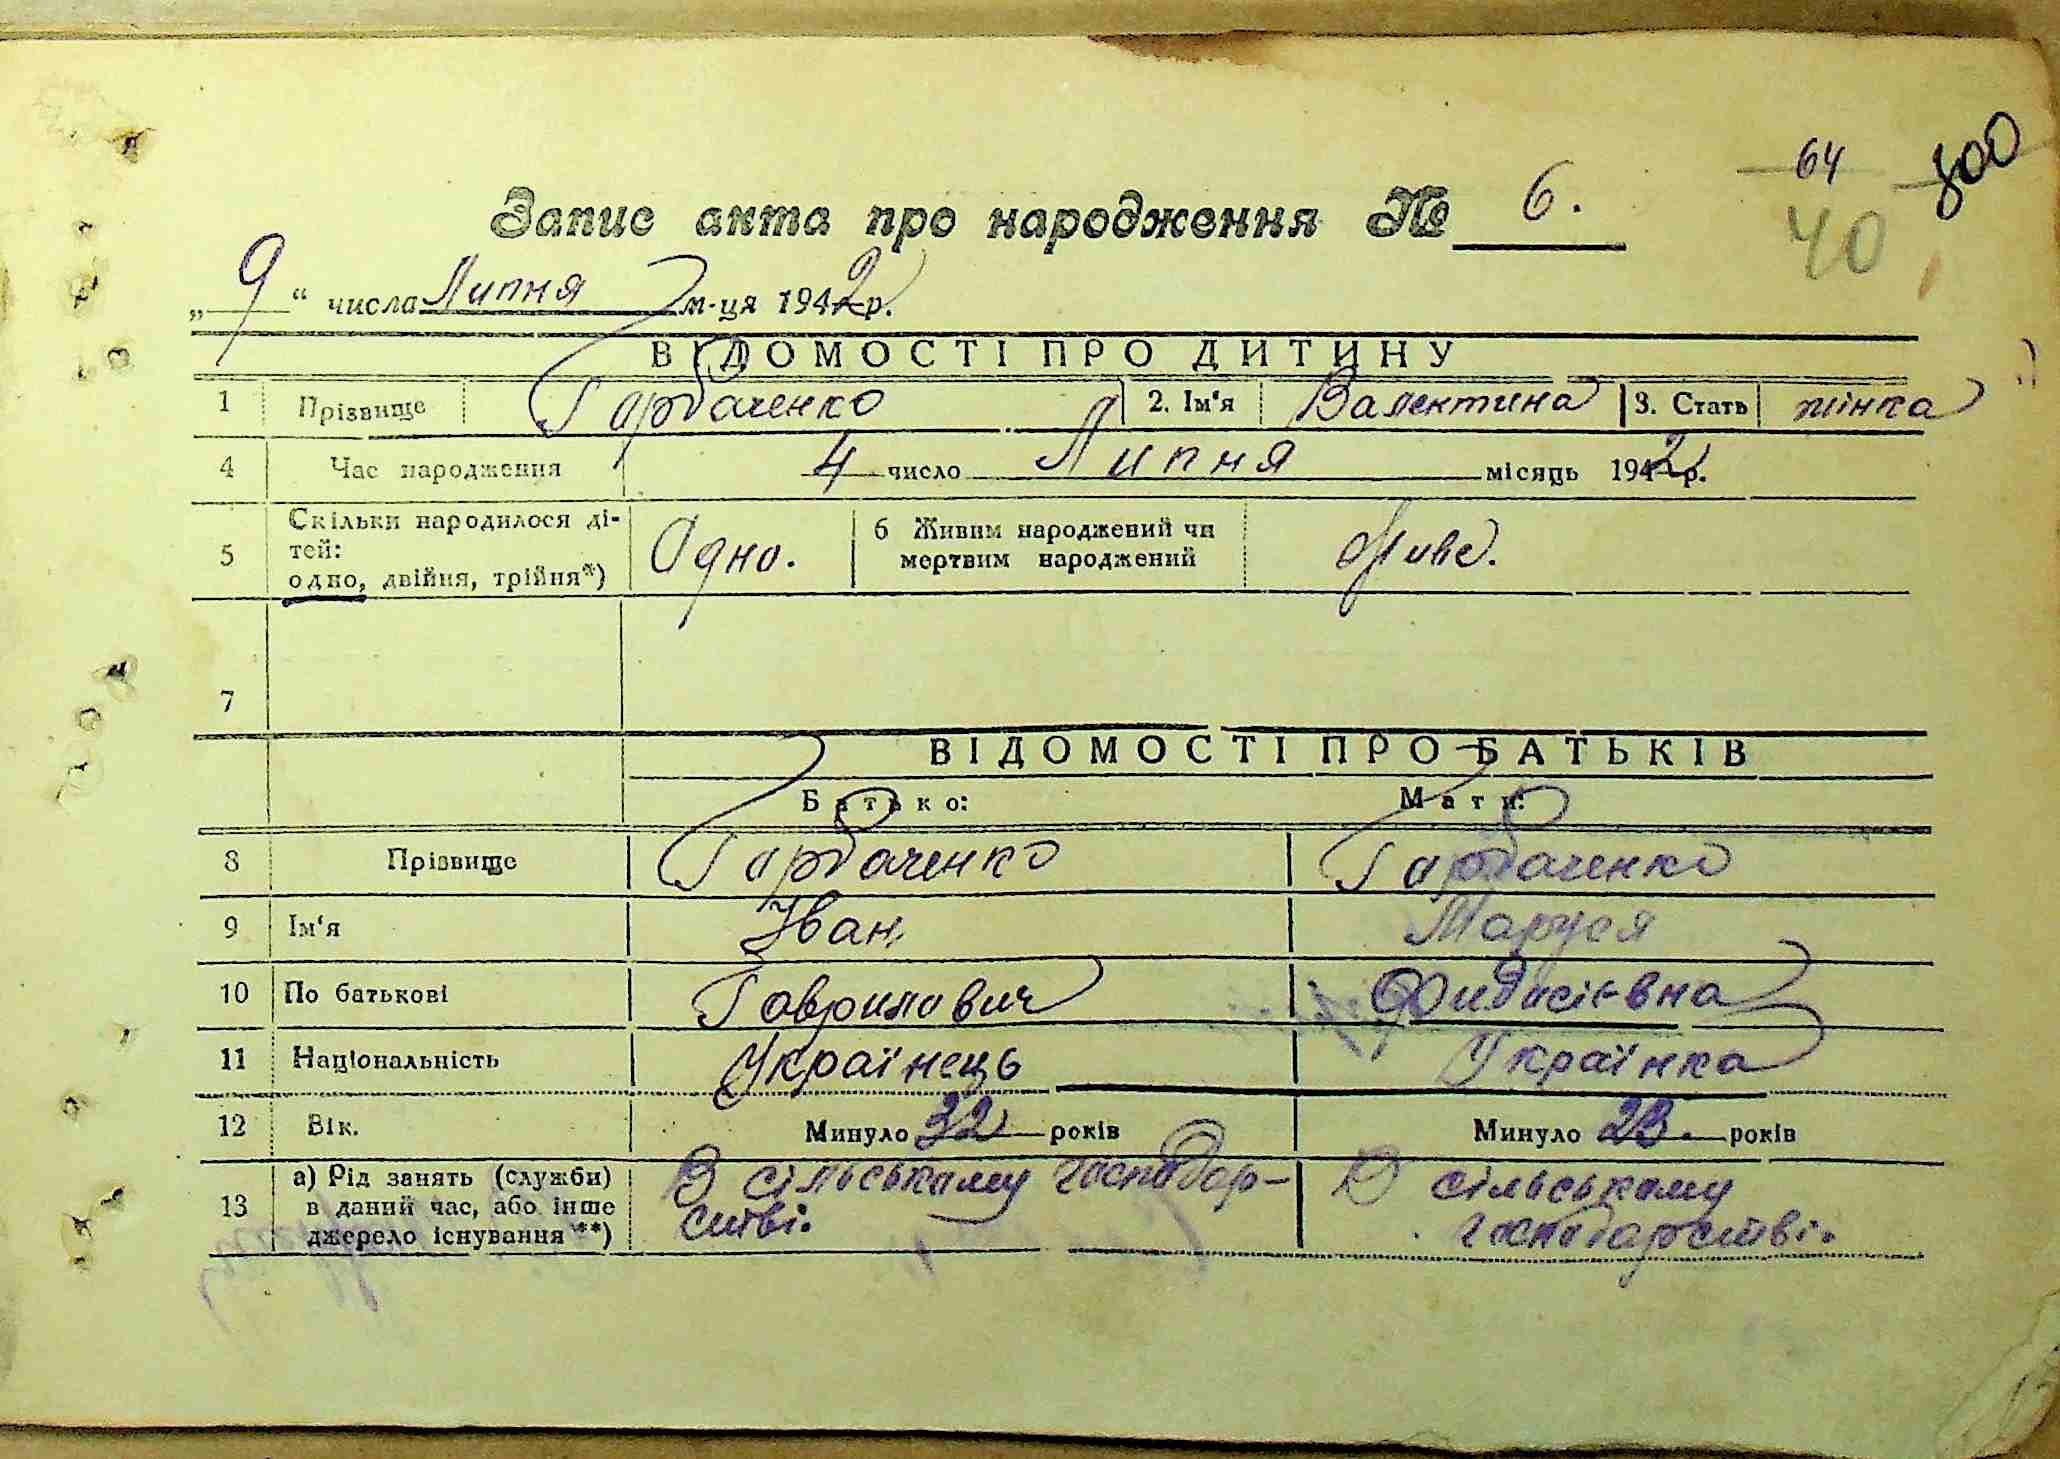 64 800
Запис акта про народження № 6.
40
„9“ числа Липня м-ця 1942 р.
ВІДОМОСТІ ПРО ДИТИНУ
1 Прізвище Гарбаченко 2. Ім'я Валентина 3. Стать жінка
4 Час народження 4 число Липня місяць 1942 р.
5 Скільки народилося ді-
тей:
одно, двійня, трійня*) Одно. 6 Живим народжений чи
мертвим народжений Живе.
7
ВІДОМОСТІ ПРО БАТЬКІВ
Батько: Мати:
8 Прізвище Гарбаченко Гарбаченко
9 Ім'я Іван Маруся
10 По батькові Гаврилович
11 Національність Українець Українка
12 Вік. Минуло 32 років Минуло 23. років
13 а) Рід занять (служби)
в даний час, або інше
джерело існування**) В сільському господар-
стві. В сільському
господарстві.